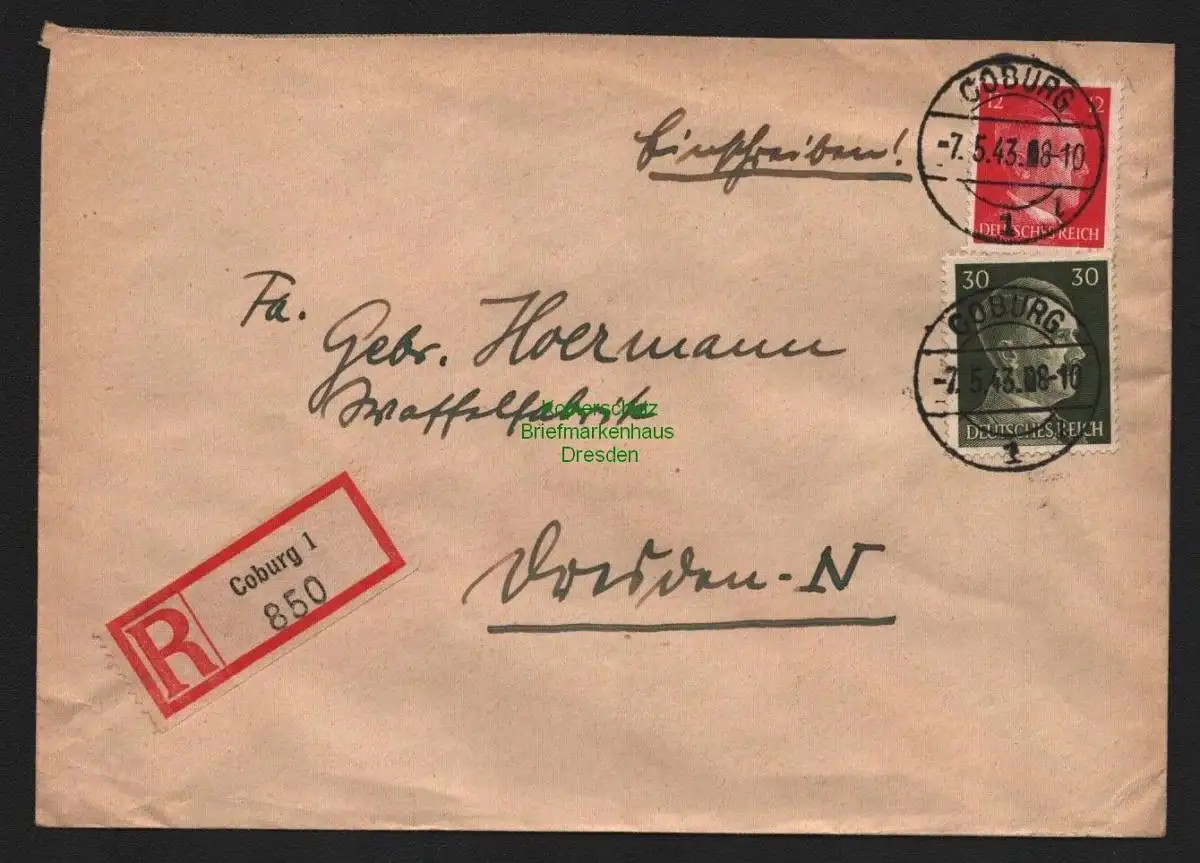 Einschreiben!
COBURG
-7.5.43. 8-10
1 l
12 12
DEUTSCHES REICH
30 30
COBURG
-7.5.43. 8-10
1
DEUTSCHES REICH
Fa.
Gebr. Hoermann
Waffelfabrik
Briefmarkenhaus
Dresden
Dresden-N
R
Coburg 1
850